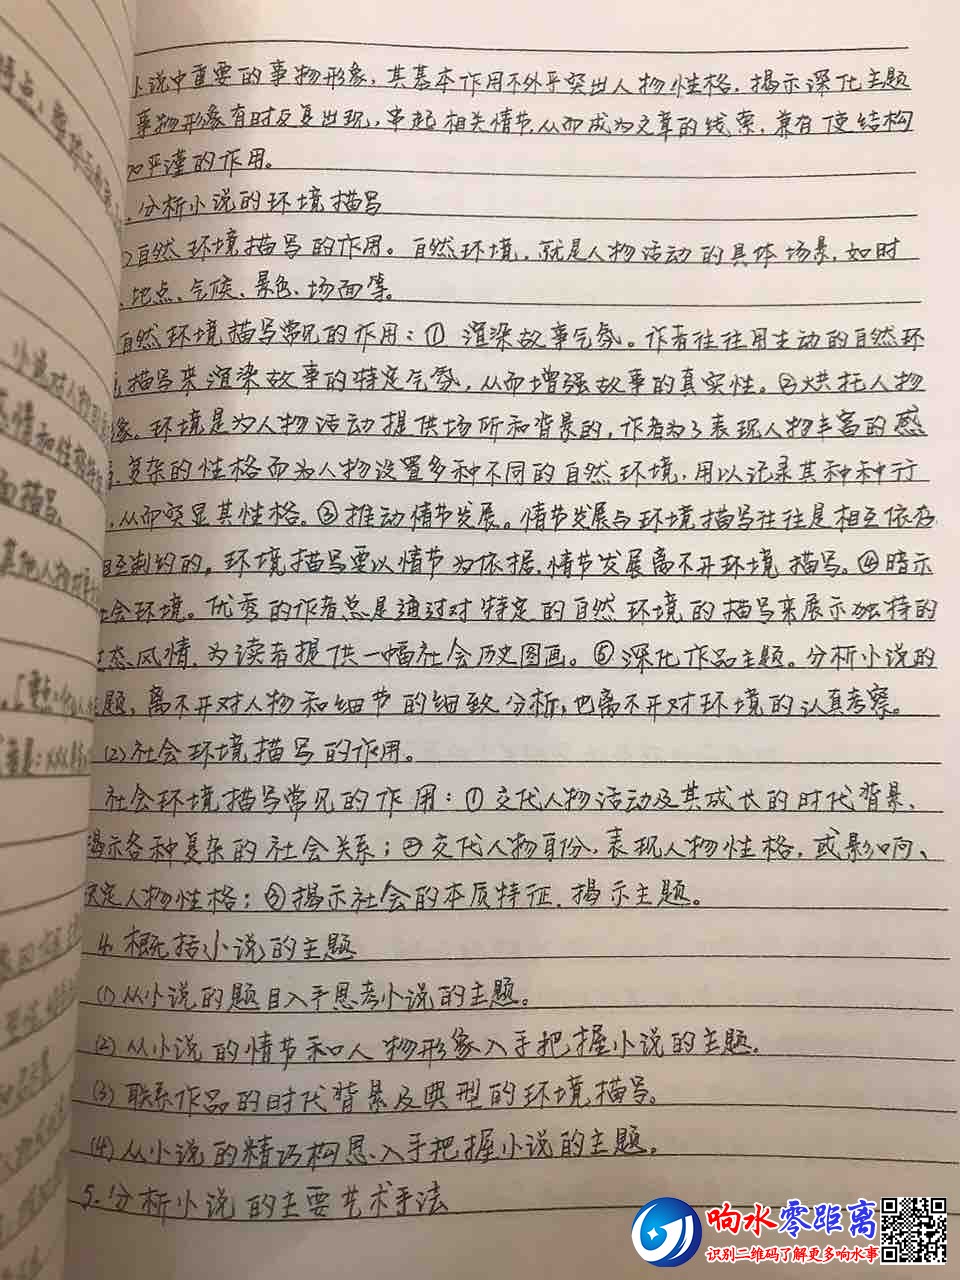 小说中重要的事物形象,其基本作用不外乎突出人物性格,揭示深化主题
事物形象有时反复出现,串起相关情节,从而成为文章的线索,兼有使结构
加严谨的作用。
分析小说的环境描写
自然环境描写的作用。自然环境,就是人物活动的具体场景,如时
、地点、气候、景色、场面等。
自然环境描写常见的作用:① 渲染故事气氛。作者往往用生动的自然环
描写来渲染故事的特定气氛,从而增强故事的真实性。②烘托人物
象。环境是为人物活动提供场所和背景的,作者为了表现人物丰富的感
复杂的性格而为人物设置多种不同的自然环境,用以记录其种种行
,从而突显其性格。③推动情节发展。情节发展与环境描写往往是相互依存
相互制约的。环境描写要以情节为依据,情节发展离不开环境描写。④暗示
社会环境。优秀的作者总是通过对特定的自然环境的描写来展示独特的
态风情,为读者提供一幅社会历史图画。⑤深化作品主题。分析小说的
主题,离不开对人物和细节的细致分析,也离不开对环境的认真考察。
(2)社会环境描写的作用。
社会环境描写常见的作用:①交代人物活动及其成长的时代背景,
揭示各种复杂的社会关系;②交代人物身份,表现人物性格,或影响、
决定人物性格;③揭示社会的本质特征,揭示主题。
4. 概括小说的主题
(1)从小说的题目入手思考小说的主题。
(2)从小说的情节和人物形象入手把握小说的主题。
(3)联系作品的时代背景及典型的环境描写。
(4)从小说的精巧构思入手把握小说的主题。
5. 分析小说的主要艺术手法
响水零距离
识别二维码了解更多响水事